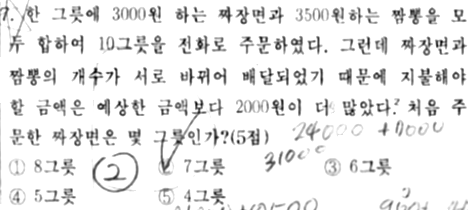 7. 한 그릇에 3000원 하는 짜장면과 3500원하는 짬뽕을 모
두 합하여 10그릇을 전화로 주문하였다. 그런데 짜장면과
짬뽕의 개수가 서로 바뀌어 배달되었기 때문에 지불해야
할 금액은 예상한 금액보다 2000원이 더 많았다. 처음 주
문한 짜장면은 몇 그릇인가?(5점) 24000 +7000
① 8그릇 ② 7그릇 31000 ③ 6그릇
④ 5그릇 ⑤ 4그릇